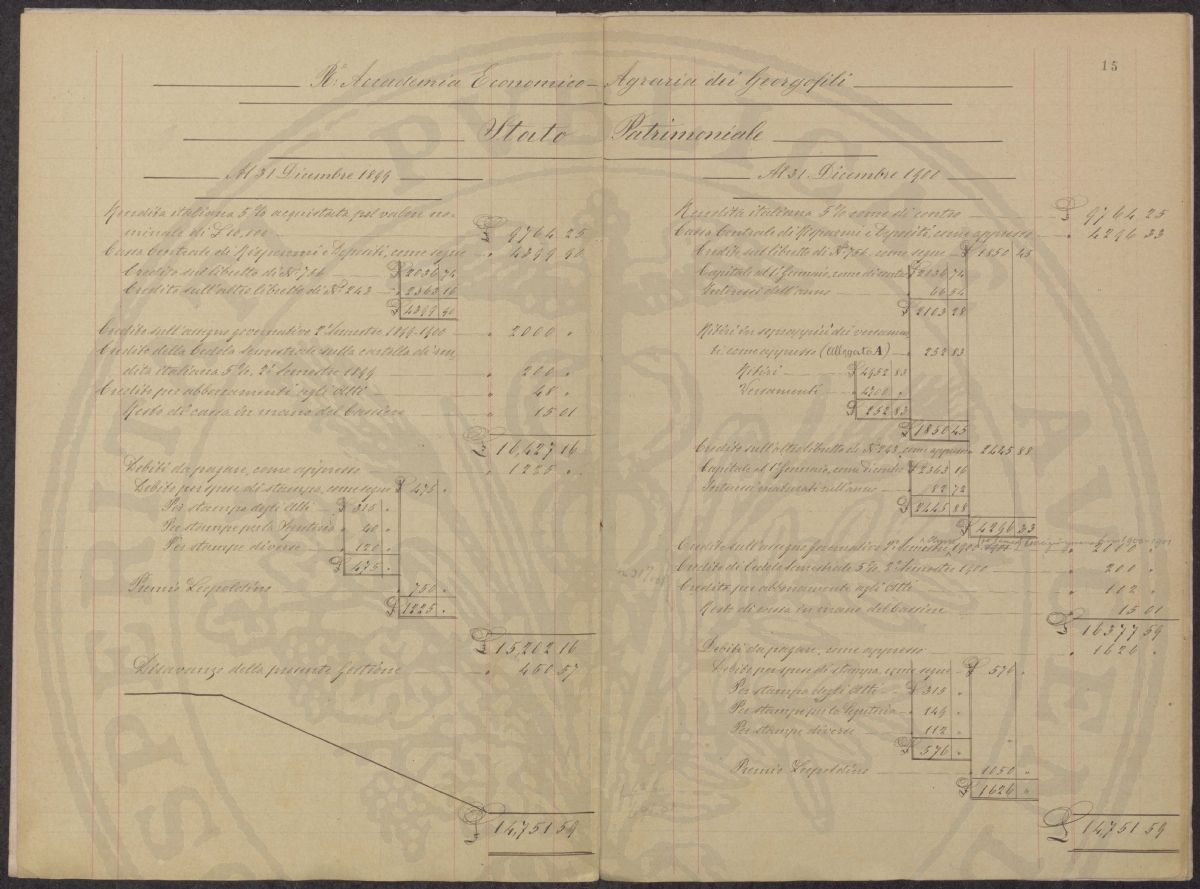 15
R.ª Accademia Economico-Agraria dei Georgofili
Stato Patrimoniale
Al 31 Dicembre 1899
Rendita italiana 5% acquistata pel valor no-
minale di £ 10,000 £ 9764 25
Cassa Centrale di Risparmi e Depositi, come segue " 4399 90
Credito sul libretto di N° 756 £ 2036 74
Credito sull'altro libretto di N° 243 " 2363 16
£ 4399 90
Credito sull'assegno governativo 2° Semestre 1899-1900 " 2000 "
Credito della Cedola Semestrale sulla cartella di ren-
dita italiana 5%, 2° Semestre 1899 " 200 "
Credito per abbonamenti agli Atti " 48 "
Resto di cassa in mano del Cassiere " 15 01
£ 16,427 16
Debiti da pagare, come appresso " 1225 "
Debito per spese di stampa, come segue £ 475 "
Per stampa degli Atti £ 315 "
Per stampe per la Segreteria " 40 "
Per stampe diverse " 120 "
£ 475 "
Premio Leopoldino " 750 "
£ 1225 "
£ 15,202 16
Disavanzo della presente Gestione " 450 57
£ 14,751 59
Al 31 Dicembre 1900
Rendita italiana 5% come di contro £ 9764 25
Cassa Centrale di Risparmi e Depositi, come appresso " 4296 33
Credito sul libretto di N° 756, come segue £ 1850 45
Capitale al 1° Gennaio, come di contro £ 2036 74
Interessi dell'anno " 66 54
£ 2103 28
Ritiri in soprappiù dei versamen-
ti come appresso (Allegato A) " 252 83
Ritiri £ 4952 83
Versamenti " 4700 "
£ 252 83
£ 1850 45
Credito sull'altro libretto di N° 243, come appresso 2445 88
Capitale al 1° Gennaio, come di contro £ 2363 16
Interessi maturati nell'anno " 82 72
£ 2445 88
£ 4296 33
Credito sull'assegno governativo 2° Semestre 1900 " 2000 "
Credito di Cedola Semestrale 5% 2° Semestre 1900 " 200 "
Credito per abbonamento agli Atti " 102 "
Resto di cassa in mano del Cassiere " 15 01
£ 16377 59
Debiti da pagare, come appresso " 1626 "
Debito per spese di stampa, come segue £ 576 "
Per stampa degli Atti £ 315 "
Per stampe per la Segreteria " 149 "
Per stampe diverse " 112 "
£ 576 "
Premio Leopoldino " 1050 "
£ 1626 "
£ 14751 59